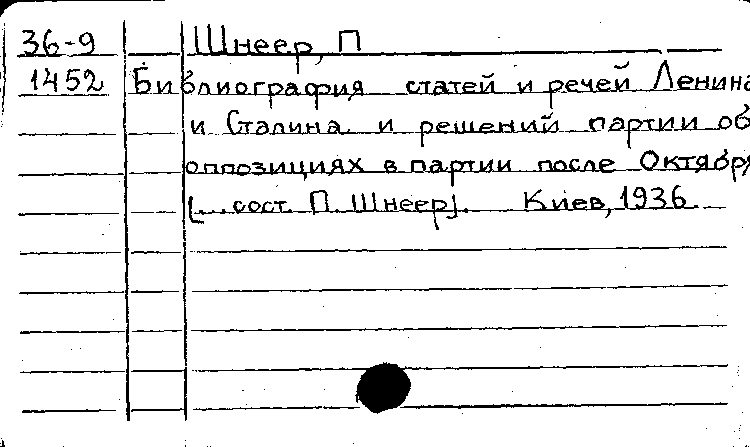 36-9 Шнеер, П
1452 Библиография статей и речей Ленина
и Сталина и решений партии об
оппозициях в партии после Октябр
[... сост. П. Шнеер]. Киев, 1936.